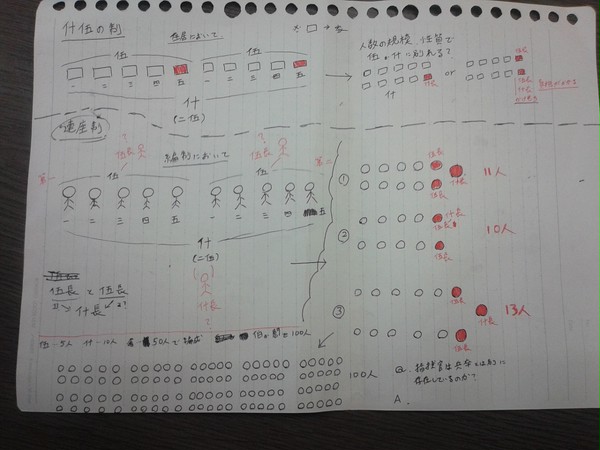 什伍の制
住居において
伍
伍
一 二 三 四 五 一 二 三 四 五
什
(二伍)
人数の規模、性質で
伍か什に別れる?
什長
什
or
伍長
伍長
什長
連座制
編制において
?
伍長
?
伍長
第一
伍
伍
第二
一 二 三 四 五 一 二 三 四 五
什
(二伍)
什長
?
伍長と伍長
什長
伍…5人 什…10人 50人で 100人
100人
①
伍長
什長
伍長
11人
②
什長
伍長
伍長
10人
③
伍長
什長
伍長
13人
Q. 指揮官は兵卒とは別に
存在しているのか?
A.